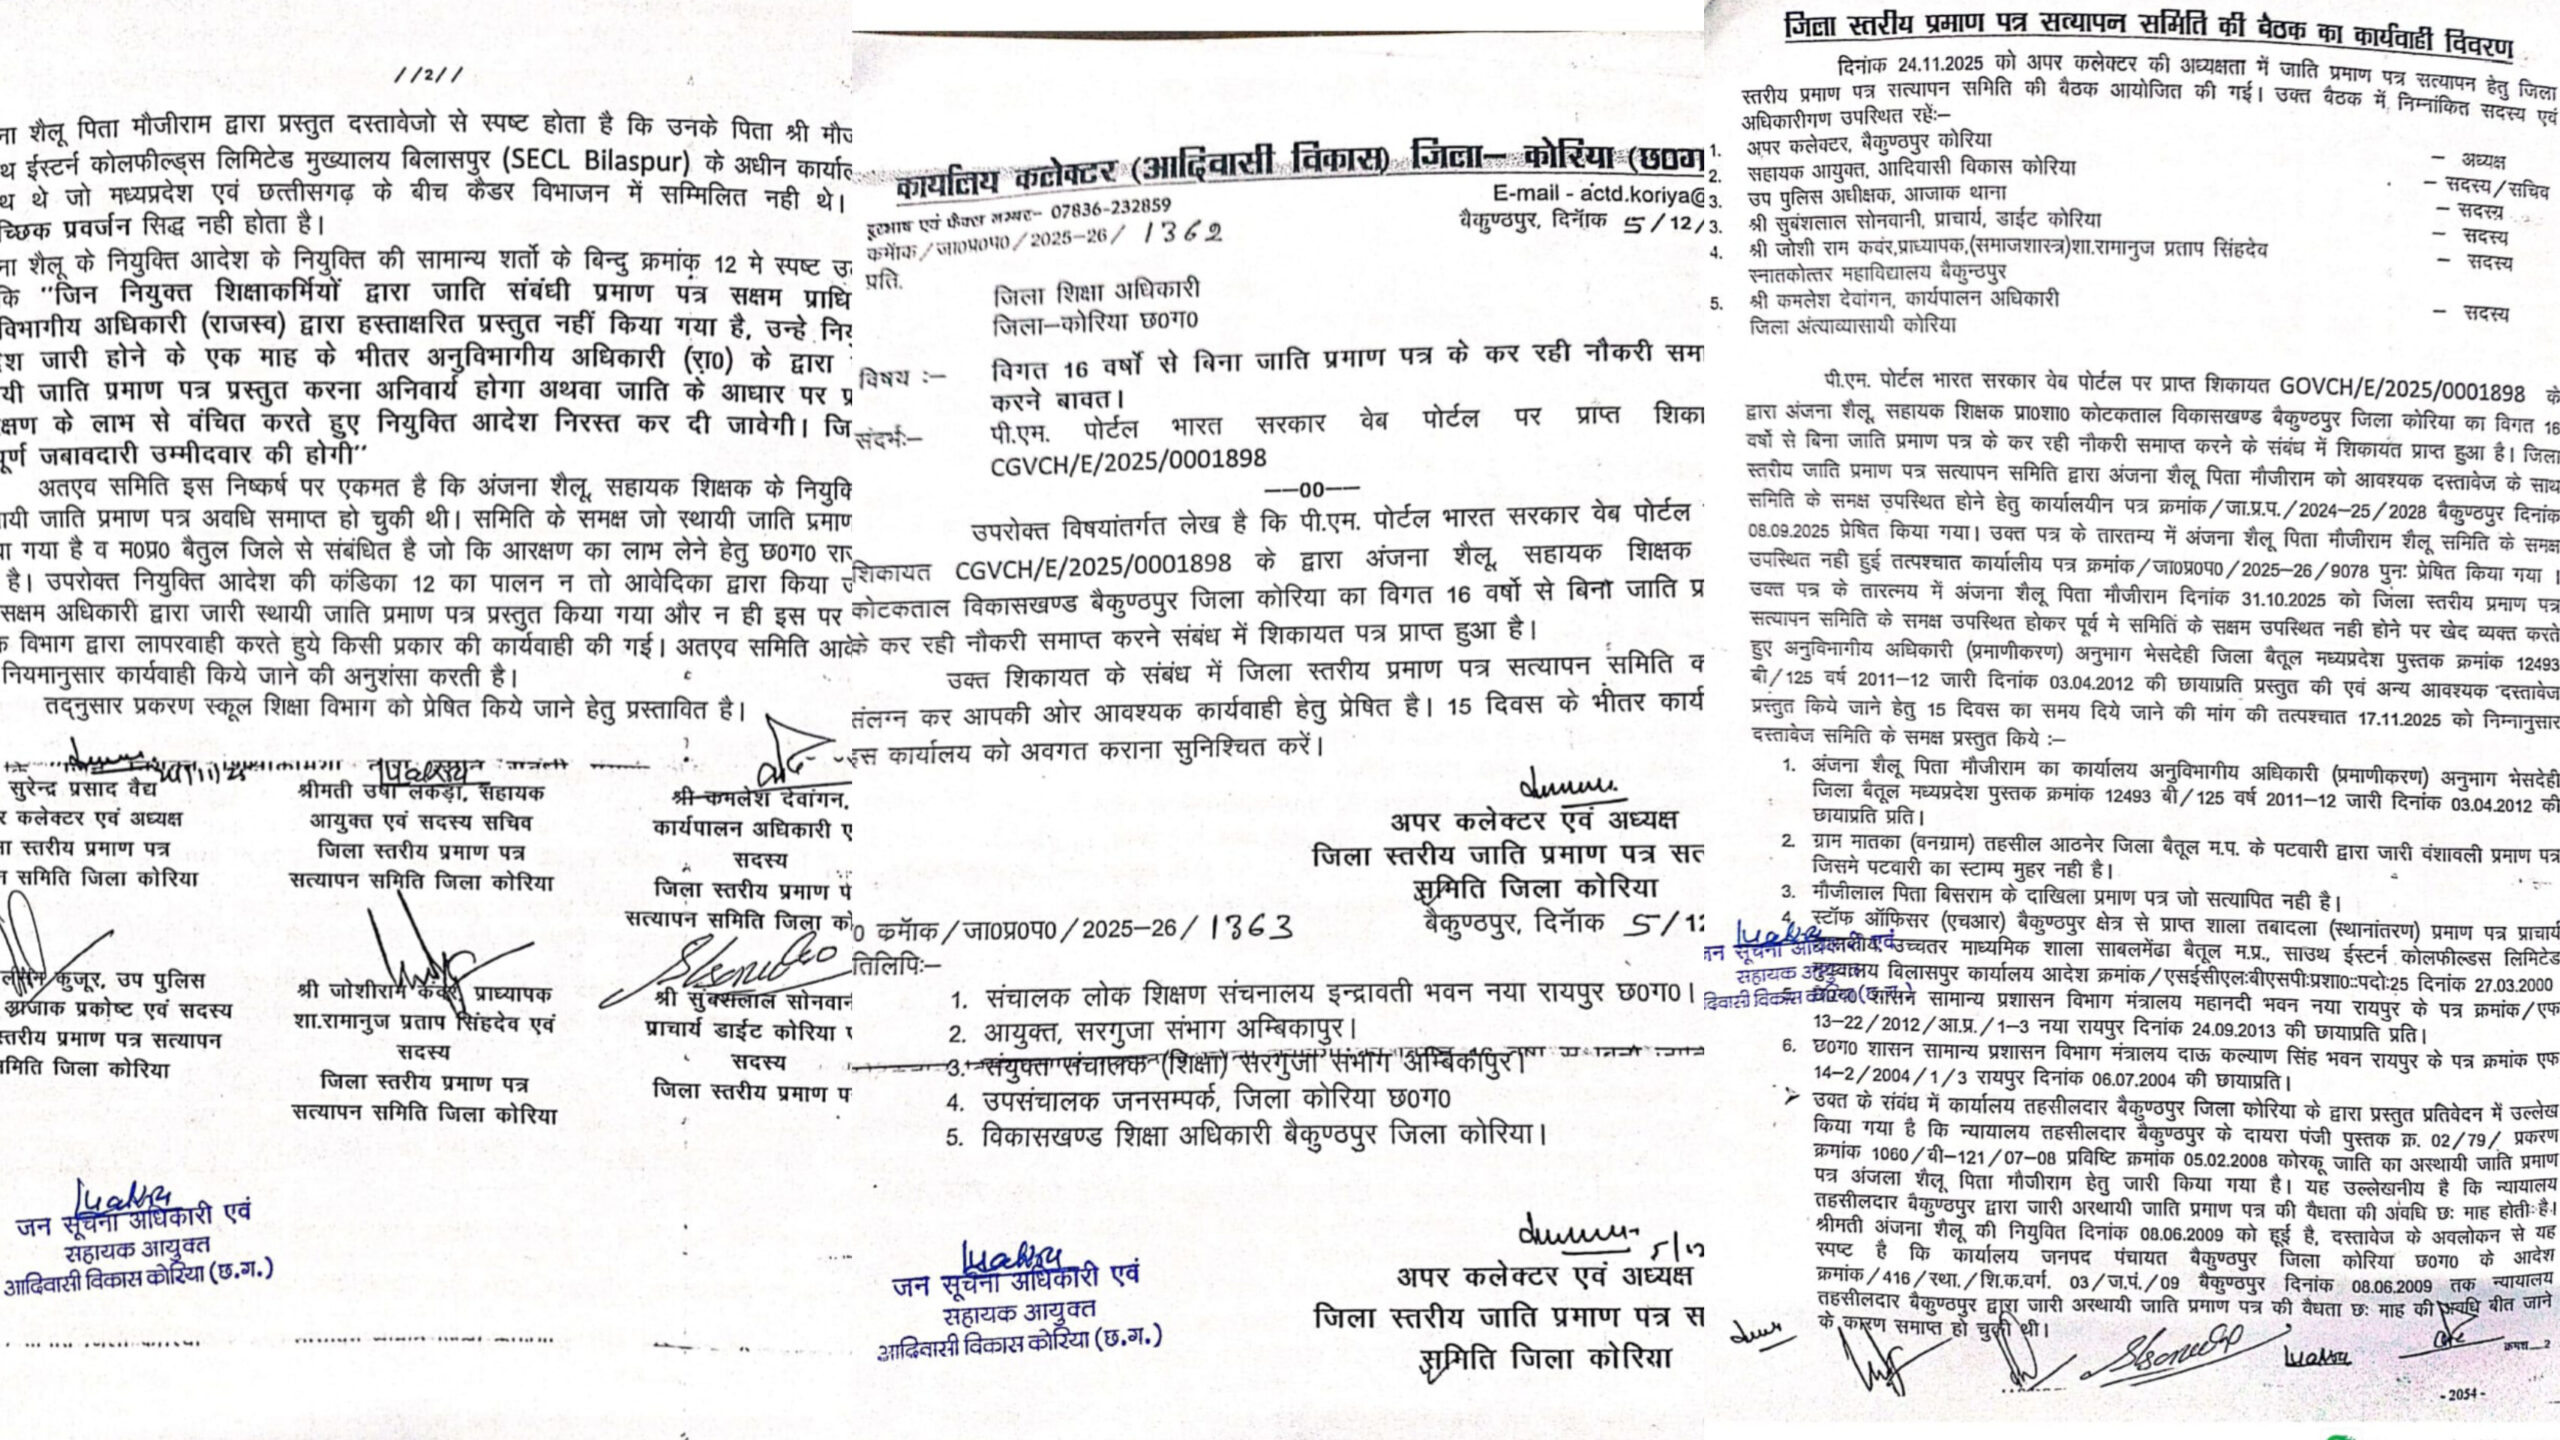 //2//
ना शैलू पिता मौजीराम द्वारा प्रस्तुत दस्तावेजो से स्पष्ट होता है कि उनके पिता श्री
ईस्टर्न कोलफील्ड्स लिमिटेड मुख्यालय बिलासपुर (SECL Bilaspur) के अधीन
थे जो मध्यप्रदेश एवं छत्तीसगढ़ के बीच कैडर विभाजन में सम्मिलित नही थे।
च्छिक प्रवर्जन सिद्ध नही होता है।
ना शैलू के नियुक्ति आदेश के नियुक्ति की सामान्य शर्तो के बिन्दु क्रमांक 12 मे स्पष्ट
कि "जिन नियुक्त शिक्षाकर्मियों द्वारा जाति संबंधी प्रमाण पत्र सक्षम
विभागीय अधिकारी (राजस्व) द्वारा हस्ताक्षरित प्रस्तुत नहीं किया गया है, उन्हे
जारी होने के एक माह के भीतर अनुविभागीय अधिकारी (रा0) के द्वारा
यी जाति प्रमाण पत्र प्रस्तुत करना अनिवार्य होगा अथवा जाति के आधार पर
क्षण के लाभ से वंचित करते हुए नियुक्ति आदेश निरस्त कर दी जावेगी।
पूर्ण जबावदारी उम्मीदवार की होगी"
अतएव समिति इस निष्कर्ष पर एकमत है कि अंजना शैलू, सहायक शिक्षक के
यी जाति प्रमाण पत्र अवधि समाप्त हो चुकी थी। समिति के समक्ष जो स्थायी जाति प्रमाण
गया है व म0प्र0 बैतुल जिले से संबंधित है जो कि आरक्षण का लाभ लेने हेतु छ0ग0
है। उपरोक्त नियुक्ति आदेश की कंडिका 12 का पालन न तो आवेदिका द्वारा किया
सक्षम अधिकारी द्वारा जारी स्थायी जाति प्रमाण पत्र प्रस्तुत किया गया और न ही इस पर
विभाग द्वारा लापरवाही करते हुये किसी प्रकार की कार्यवाही की गई। अतएव समिति
नियमानुसार कार्यवाही किये जाने की अनुशंसा करती है।
तद्नुसार प्रकरण स्कूल शिक्षा विभाग को प्रेषित किये जाने हेतु प्रस्तावित है।
सुरेन्द्र प्रसाद वैद्य
कलेक्टर एवं अध्यक्ष
स्तरीय प्रमाण पत्र
समिति जिला कोरिया
श्रीमती उषा लकड़ा, सहायक
आयुक्त एवं सदस्य सचिव
जिला स्तरीय प्रमाण पत्र
सत्यापन समिति जिला कोरिया
श्री कमलेश देवांगन,
कार्यपालन अधिकारी
सदस्य
जिला स्तरीय प्रमाण
सत्यापन समिति जिला
कुजूर, उप पुलिस
आजाक प्रकोष्ट एवं सदस्य
स्तरीय प्रमाण पत्र सत्यापन
समिति जिला कोरिया
श्री जोशीराम कंवर, प्राध्यापक
शा.रामानुज प्रताप सिंहदेव एवं
सदस्य
जिला स्तरीय प्रमाण पत्र
सत्यापन समिति जिला कोरिया
श्री सुबंसलाल
प्राचार्य डाईट कोरिया
सदस्य
जिला स्तरीय प्रमाण
जन सूचना अधिकारी एवं
सहायक आयुक्त
आदिवासी विकास कोरिया (छ.ग.)
कार्यालय कलेक्टर (आदिवासी विकास) जिला– कोरिया (छ0ग
E-mail - actd.koriya@
दूरभाष एवं फैक्स नम्बर– 07836-232859
बैकुण्ठपुर, दिनॅाक 5/12/
कमॅाक/जा0प्र0प0/2025-26/ 1362
प्रति,
जिला शिक्षा अधिकारी
जिला–कोरिया छ0ग0
विषय :– विगत 16 वर्षो से बिना जाति प्रमाण पत्र के कर रही नौकरी
करने बावत।
संदर्भः– पी.एम. पोर्टल भारत सरकार वेब पोर्टल पर प्राप्त
CGVCH/E/2025/0001898
––00––
उपरोक्त विषयांतर्गत लेख है कि पी.एम. पोर्टल भारत सरकार वेब पोर्टल
शिकायत CGVCH/E/2025/0001898 के द्वारा अंजना शैलू, सहायक शिक्षक
कोटकताल विकासखण्ड बैकुण्ठपुर जिला कोरिया का विगत 16 वर्षो से बिना जाति
के कर रही नौकरी समाप्त करने संबंध में शिकायत पत्र प्राप्त हुआ है।
उक्त शिकायत के संबंध में जिला स्तरीय प्रमाण पत्र सत्यापन समिति
संलग्न कर आपकी ओर आवश्यक कार्यवाही हेतु प्रेषित है। 15 दिवस के भीतर
इस कार्यालय को अवगत कराना सुनिश्चित करें।
अपर कलेक्टर एवं अध्यक्ष
जिला स्तरीय जाति प्रमाण पत्र
समिति जिला कोरिया
0 कमॅाक/जा0प्र0प0/2025-26/1363
बैकुण्ठपुर, दिनॅाक 5/12
तिलिपिः–
1. संचालक लोक शिक्षण संचनालय इन्द्रावती भवन नया रायपुर छ0ग0।
2. आयुक्त, सरगुजा संभाग अम्बिकापुर।
3. संयुक्त संचालक (शिक्षा) सरगुजा संभाग अम्बिकापुर।
4. उपसंचालक जनसम्पर्क, जिला कोरिया छ0ग0
5. विकासखण्ड शिक्षा अधिकारी बैकुण्ठपुर जिला कोरिया।
5/12
अपर कलेक्टर एवं अध्यक्ष
जिला स्तरीय जाति प्रमाण पत्र
समिति जिला कोरिया
जन सूचना अधिकारी एवं
सहायक आयुक्त
आदिवासी विकास कोरिया (छ.ग.)
जिला स्तरीय प्रमाण पत्र सत्यापन समिति की बैठक का कार्यवाही विवरण
दिनांक 24.11.2025 को अपर कलेक्टर की अध्यक्षता में जाति प्रमाण पत्र सत्यापन हेतु जिला
स्तरीय प्रमाण पत्र सत्यापन समिति की बैठक आयोजित की गई। उक्त बैठक में निम्नांकित सदस्य एवं
अधिकारीगण उपस्थित रहें:–
1. अपर कलेक्टर, बैकुण्ठपुर कोरिया – अध्यक्ष
2. सहायक आयुक्त, आदिवासी विकास कोरिया – सदस्य/सचिव
3. उप पुलिस अधीक्षक, आजाक थाना – सदस्य
3. श्री सुबंशलाल सोनवानी, प्राचार्य, डाईट कोरिया – सदस्य
4. श्री जोशी राम कवंर,प्राध्यापक,(समाजशास्त्र)शा.रामानुज प्रताप सिंहदेव – सदस्य
स्नातकोत्तर महाविद्यालय बैकुन्ठपुर
5. श्री कमलेश देवांगन, कार्यपालन अधिकारी – सदस्य
जिला अंत्याव्यासायी कोरिया
पी.एम. पोर्टल भारत सरकार वेब पोर्टल पर प्राप्त शिकायत GOVCH/E/2025/0001898 के
द्वारा अंजना शैलू, सहायक शिक्षक प्रा0शा0 कोटकताल विकासखण्ड बैकुण्ठपुर जिला कोरिया का विगत 16
वर्षो से बिना जाति प्रमाण पत्र के कर रही नौकरी समाप्त करने के संबंध में शिकायत प्राप्त हुआ है। जिला
स्तरीय जाति प्रमाण पत्र सत्यापन समिति द्वारा अंजना शैलू पिता मौजीराम को आवश्यक दस्तावेज के साथ
समिति के समक्ष उपस्थित होने हेतु कार्यालयीन पत्र क्रमांक/जा.प्र.प./2024-25/2028 बैकुण्ठपुर दिनांक
08.09.2025 प्रेषित किया गया। उक्त पत्र के तारतम्य में अंजना शैलू पिता मौजीराम शैलू समिति के समक्ष
उपस्थित नही हुई तत्पश्चात कार्यालीय पत्र क्रमांक/जा0प्र0प0/2025-26/9078 पुनः प्रेषित किया गया ।
उक्त पत्र के तारत्मय में अंजना शैलू पिता मौजीराम दिनांक 31.10.2025 को जिला स्तरीय प्रमाण पत्र
सत्यापन समिति के समक्ष उपस्थित होकर पूर्व मे समिति के सक्षम उपस्थित नही होने पर खेद व्यक्त करते
हुए अनुविभागीय अधिकारी (प्रमाणीकरण) अनुभाग भेसदेही जिला बैतूल मध्यप्रदेश पुस्तक क्रमांक 12493
बी/125 वर्ष 2011-12 जारी दिनांक 03.04.2012 की छायाप्रति प्रस्तुत की एवं अन्य आवश्यक दस्तावेज
प्रस्तुत किये जाने हेतु 15 दिवस का समय दिये जाने की मांग की तत्पश्चात 17.11.2025 को निम्नानुसार
दस्तावेज समिति के समक्ष प्रस्तुत किये :–
1. अंजना शैलू पिता मौजीराम का कार्यालय अनुविभागीय अधिकारी (प्रमाणीकरण) अनुभाग भेसदेही
जिला बैतूल मध्यप्रदेश पुस्तक क्रमांक 12493 बी/125 वर्ष 2011-12 जारी दिनांक 03.04.2012 की
छायाप्रति प्रति।
2. ग्राम मातका (वनग्राम) तहसील आठनेर जिला बैतूल म.प. के पटवारी द्वारा जारी वंशावली प्रमाण पत्र
जिसमे पटवारी का स्टाम्प मुहर नही है।
3. मौजीलाल पिता बिसराम के दाखिला प्रमाण पत्र जो सत्यापित नही है।
4. स्टॉफ ऑफिसर (एचआर) बैकुण्ठपुर क्षेत्र से प्राप्त शाला तबादला (स्थानांतरण) प्रमाण पत्र प्राचार्य
उच्चतर माध्यमिक शाला साबलमेंढा बैतूल म.प्र., साउथ ईस्टर्न कोलफील्डस लिमिटेड
मुख्यालय बिलासपुर कार्यालय आदेश क्रमांक/एसईसीएल:बीएसपी:प्रशा0::पदो:25 दिनांक 27.03.2000
5. छ0ग0 शासन सामान्य प्रशासन विभाग मंत्रालय महानदी भवन नया रायपुर के पत्र क्रमांक/एफ
13-22/2012/आ.प्र./1-3 नया रायपुर दिनांक 24.09.2013 की छायाप्रति प्रति।
6. छ0ग0 शासन सामान्य प्रशासन विभाग मंत्रालय दाऊ कल्याण सिंह भवन रायपुर के पत्र क्रमांक एफ
14-2/2004/1/3 रायपुर दिनांक 06.07.2004 की छायाप्रति।
➢ उक्त के संबंध में कार्यालय तहसीलदार बैकुण्ठपुर जिला कोरिया के द्वारा प्रस्तुत प्रतिवेदन में उल्लेख
किया गया है कि न्यायालय तहसीलदार बैकुण्ठपुर के दायरा पंजी पुस्तक क्र. 02/79/ प्रकरण
क्रमांक 1060/बी-121/07-08 प्रविष्टि क्रमांक 05.02.2008 कोरकू जाति का अस्थायी जाति प्रमाण
पत्र अंजला शैलू पिता मौजीराम हेतु जारी किया गया है। यह उल्लेखनीय है कि न्यायालय
तहसीलदार बैकुण्ठपुर द्वारा जारी अस्थायी जाति प्रमाण पत्र की वैधता की अवधि छः माह होती है।
श्रीमती अंजना शैलू की नियुक्ति दिनांक 08.06.2009 को हुई है, दस्तावेज के अवलोकन से यह
स्पष्ट है कि कार्यालय जनपद पंचायत बैकुण्ठपुर जिला कोरिया छ0ग0 के आदेश
क्रमांक/416/स्था./शि.क.वर्ग. 03/ज.पं./09 बैकुण्ठपुर दिनांक 08.06.2009 तक न्यायालय
तहसीलदार बैकुण्ठपुर द्वारा जारी अस्थायी जाति प्रमाण पत्र की वैधता छः माह की अवधि बीत जाने
के कारण समाप्त हो चुकी थी।
जन सूचना अधिकारी एवं
सहायक आयुक्त
आदिवासी विकास कोरिया (छ.ग.)
-2054-